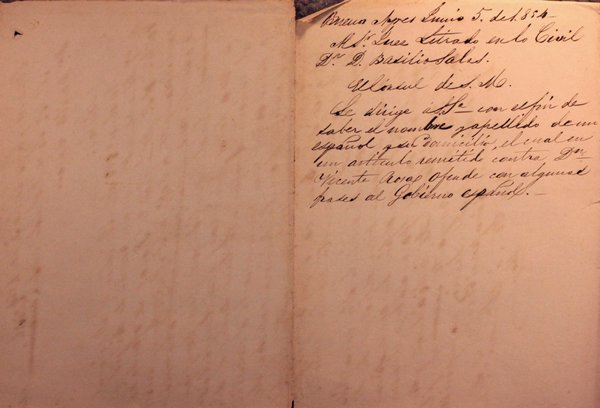 Buenos Ayres Junio 5. de 1.854.
A Sr. Juez Letrado en lo Civil
Dr. D. Basilio Salas.
El Cónsul de S. M.
Se dirige a S Sa con el fin de
saber el nombre y apellido de un
español y su domicilio, el cual en
un artículo remitido contra Dn
Vicente ofende con algunas
frases al Gobierno español.